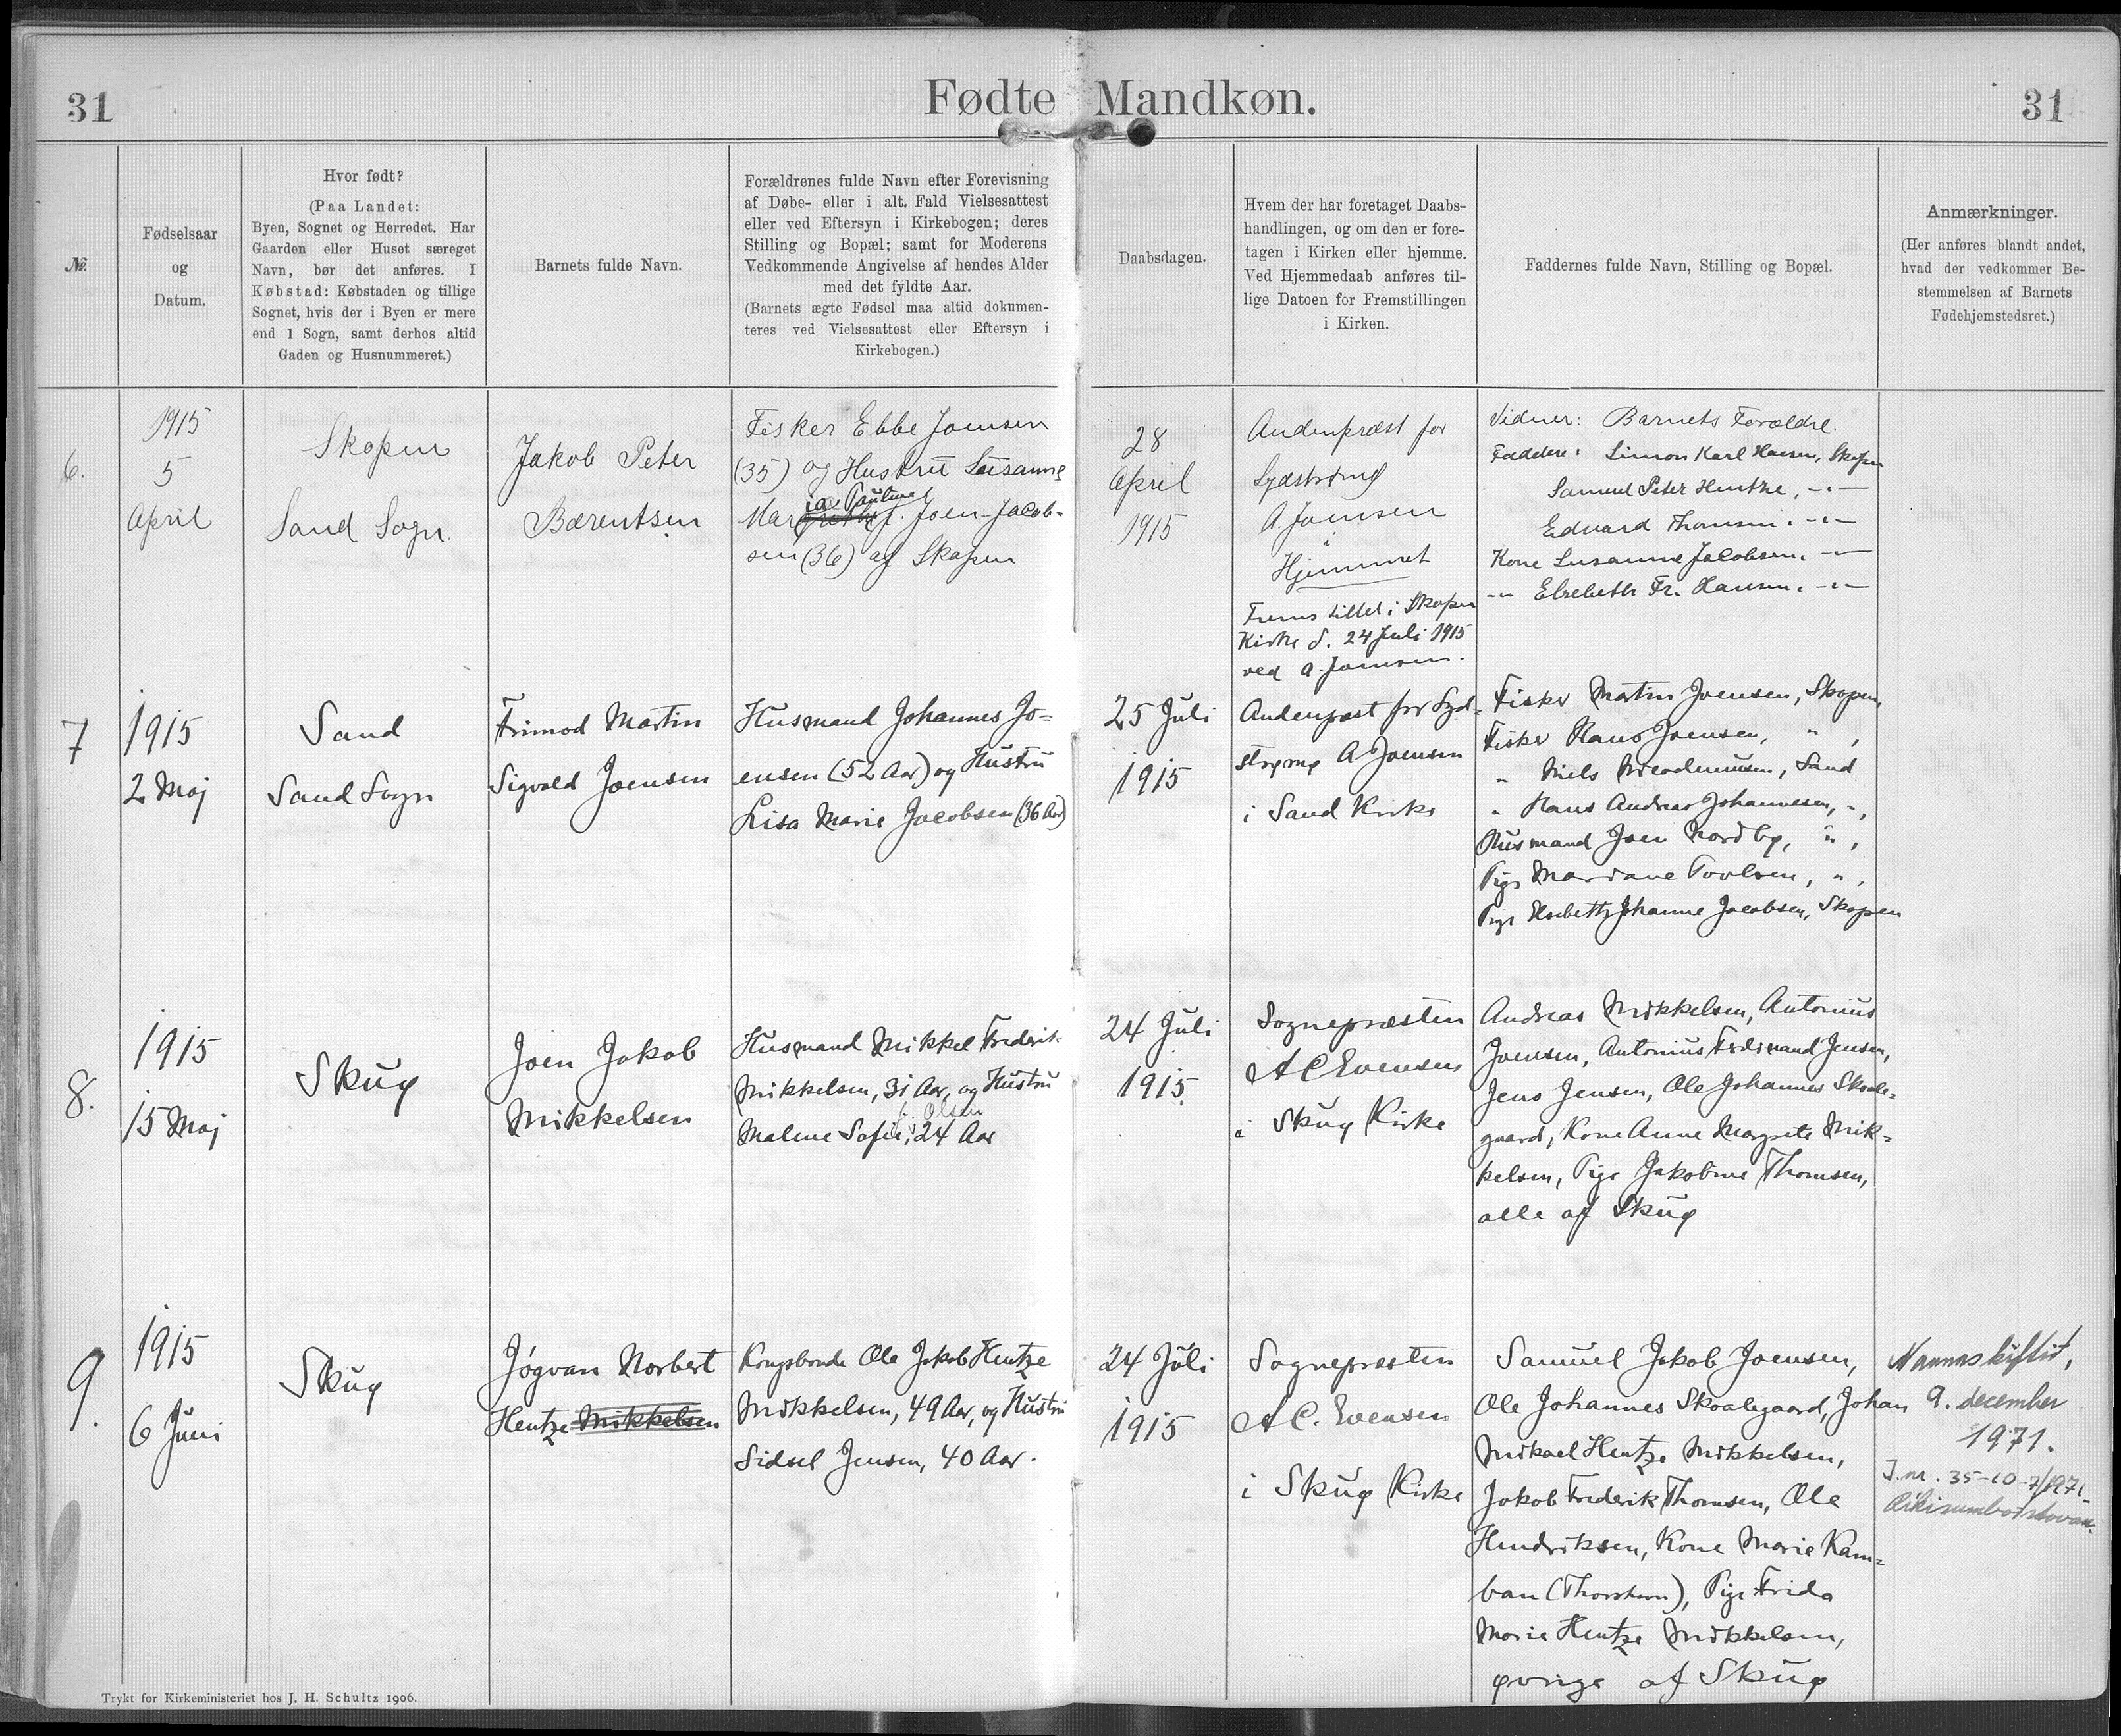 31
Fødte Mandkøn.
31
№.
Fødselsaar
og
Datum.
Hvor født?
(Paa Landet:
Byen, Sognet og Herredet. Har
Gaarden eller Huset særeget
Navn, bør det anføres. I
Købstad: Købstaden og tillige
Sognet, hvis der i Byen er mere
end 1 Sogn, samt derhos altid
Gaden og Husnummeret.)
Barnets fulde Navn.
Forældrenes fulde Navn efter Forevisning
af Døbe- eller i alt. Fald Vielsesattest
eller ved Eftersyn i Kirkebogen; deres
Stilling og Bopæl; samt for Moderens
Vedkommende Angivelse af hendes Alder
med det fyldte Aar.
(Barnets ægte Fødsel maa altid dokumen-
teres ved Vielsesattest eller Eftersyn i
Kirkebogen.)
Daabsdagen.
Hvem der har foretaget Daabs-
handlingen, og om den er fore-
tagen i Kirken eller hjemme.
Ved Hjemmedaab anføres til-
lige Datoen for Fremstillingen
i Kirken.
Faddernes fulde Navn, Stilling og Bopæl.
Anmærkninger.
(Her anføres blandt andet,
hvad der vedkommer Be-
stemmelsen af Barnets
Fødehjemstedsret.)
6.
1915
5
April
Skopen
Sand Sogn.
Jakob Peter
Bærentsen
Fisker Ebbe Joensen
(35) og Hustru Susanne
ia Pauline
Mar f. Joen-Jacob-
sen (36) af Skopen
28
April
1915
Andenpræst for
Sydstrømø
A. Joensen
Hjemmet
Fremstillet i Skopen
Kirke d. 24 Juli 1915
ved A. Joensen.
Vidner: Barnets Forældre.
Faddere: Simon Karl Hansen, Skopen
Samuel Peter Hentze, -"-
Edvard Thomsen. -"-
Kone Susanne Jacobsen. -"-
-"- Elsebeth Fr. Hansen. -"-
7
1915
2 Maj
Sand
Sand Sogn
Frimod Martin
Sigvald Joensen
Husmand Johannes Jo=
ensen (52 Aar) og Hustru
Lisa Marie Jacobsen (36 Aar)
25 Juli
1915
Andenpræst for Syd-
strømø A Joensen
i Sand Kirke
Fisker Martin Joensen, Skopen,
Fisker Hans Joensen, " ,
" Niels Nicodemussen, Sand
" Hans Andreas Johannesen, ",
Husmand Joen Nordbø, " ,
Pige Mariane Poulsen, " ,
Pige Elsebeth Johanne Jacobsen, Skopen
8.
1915
15 Maj
Skuø
Joen Jakob
Mikkelsen
Husmand Mikkel Frederik
Mikkelsen, 31 Aar, og Hustru
f. Olsen
Maline Sofie, 24 Aar
24 Juli
1915.
Sognepræsten
A C Evensen
i Skuø Kirke
Andreas Mikkelsen, Antonius
Joensen, Antonius Ferdinand Jensen,
Jens Jensen, Ole Johannes Skaale=
gaard, Kone Anne Margrete Mik=
kelsen, Pige Jakobine Thomsen,
alle af Skuø
9.
1915
6 Juni
Skuø
Jógvan Norbert
Hentze Mikkelsen
Kongsbonde Ole Jakob Hentze
Mikkelsen, 49 Aar, og Hustru
Sidsel Jensen, 40 Aar.
24 Juli
1915
Sognepræsten
A C. Evensen
i Skuø Kirke
Samuel Jakob Joensen,
Ole Johannes Skaalegaard, Johan
Mikael Hentze Mikkelsen,
Jakob Frederik Thomsen, Ole
Hendriksen, Kone Marie Kam=
ban (Thorshavn), Pige Frida
Marie Hentze Mikkelsen,
øvrige af Skuø
Navnaskiftið,
9. december
1971.
J.nr. 35-10-7/1971.
Ríkisumboðsstovan.
Trykt for Kirkeministeriet hos J. H. Schultz 1906.